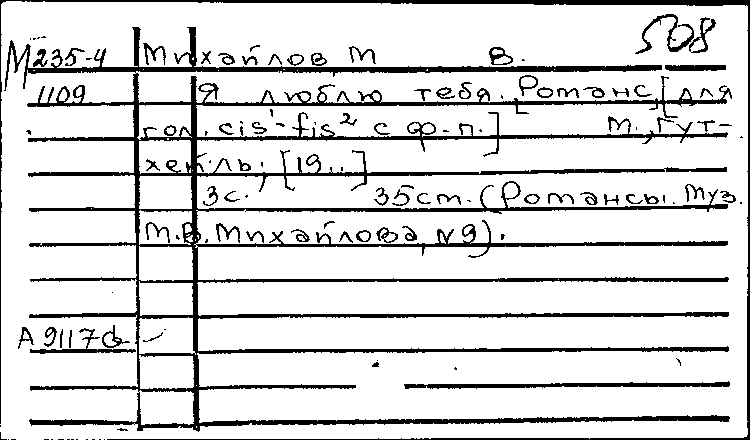 508
М 235-4 Михайлов М В.
1109 Я люблю тебя. [Романс] [для
гол. cis¹-fis² с ф-п.] М., Гут-
хейль, [19..]
3с. 35см. (Романсы. Муз.
М.В. Михайлова, №9).
А 9117